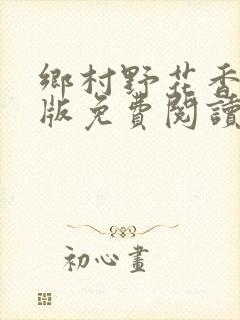 鄉村野花香
版免費閱讀
初心畫